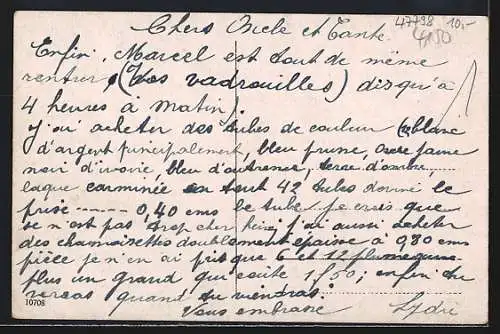 47798 10,-
4/50
Chers Oncle et Tante.
Enfin, Marcel est tout de même
rentrer, (Les vadrouilles) disqu'à
4 heures à matin!
J'ai acheter des tubes de couleur (blanc
d'argent principalement, bleu prune, ocre jaune
noir d'ivoire, bleu d'outremer, terre d'ombre,
laque carminée en tout 42 tubes donné le
prise ------ 0,40 cms le tube. je crois que
se n'est pas trop cher hein, j'ai aussi acheter
des chamoisettes doublement épaisse à 0,80 cms
pièce je n'en ai pris que 6 et 12
plus un grand qui coûte 1f50; enfin tu
verras quand tu viendras.
10708
Vous embrasse